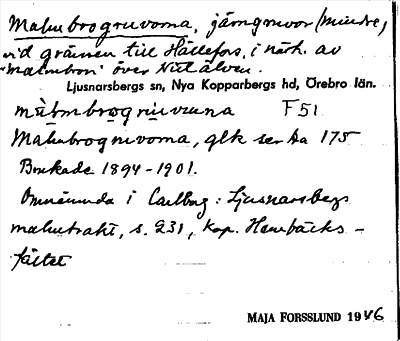 Malmbrogruvorna, järngruvor (mindre)
vid gränsen till Hällefors, i närh. av
"Malmbron" över Nittälven.
Ljusnarsbergs sn, Nya Kopparbergs hd, Örebro län.
F51
Malmbrogruvorna, glk ser ha 175
Brukade 1894-1901.
Omnämnda i Carlborg: Ljusnarsbergs
malmtrakt, s. 231, kap. Hembäcks-
fältet
MAJA FORSSLUND 1946